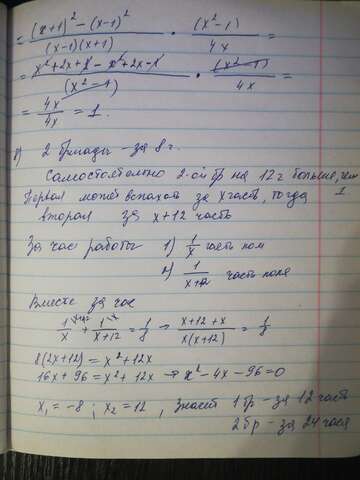 = ((x+1)² - (x-1)²)/((x-1)(x+1)) · (x²-1)/4x =
= (x²+2x+1 - x²+2x-1)/(x²-1) · (x²-1)/4x =
= 4x/4x = 1.
2 бригады - за 8 г.
Самостоятельно 2-ой бр на 12 г больше, чем 1
Первая может вспахать за x часть, тогда
вторая за x+12 часть
За час работы 1) 1/x часть пол
2) 1/(x+12) часть поля
Вместе за час
1/x + 1/(x+12) = 1/8 → (x+12+x)/(x(x+12)) = 1/8
8(2x+12) = x²+12x
16x+96 = x²+12x → x²-4x-96=0
x₁=-8; x₂=12, значит 1 бр - за 12 часть
2 бр - за 24 часа